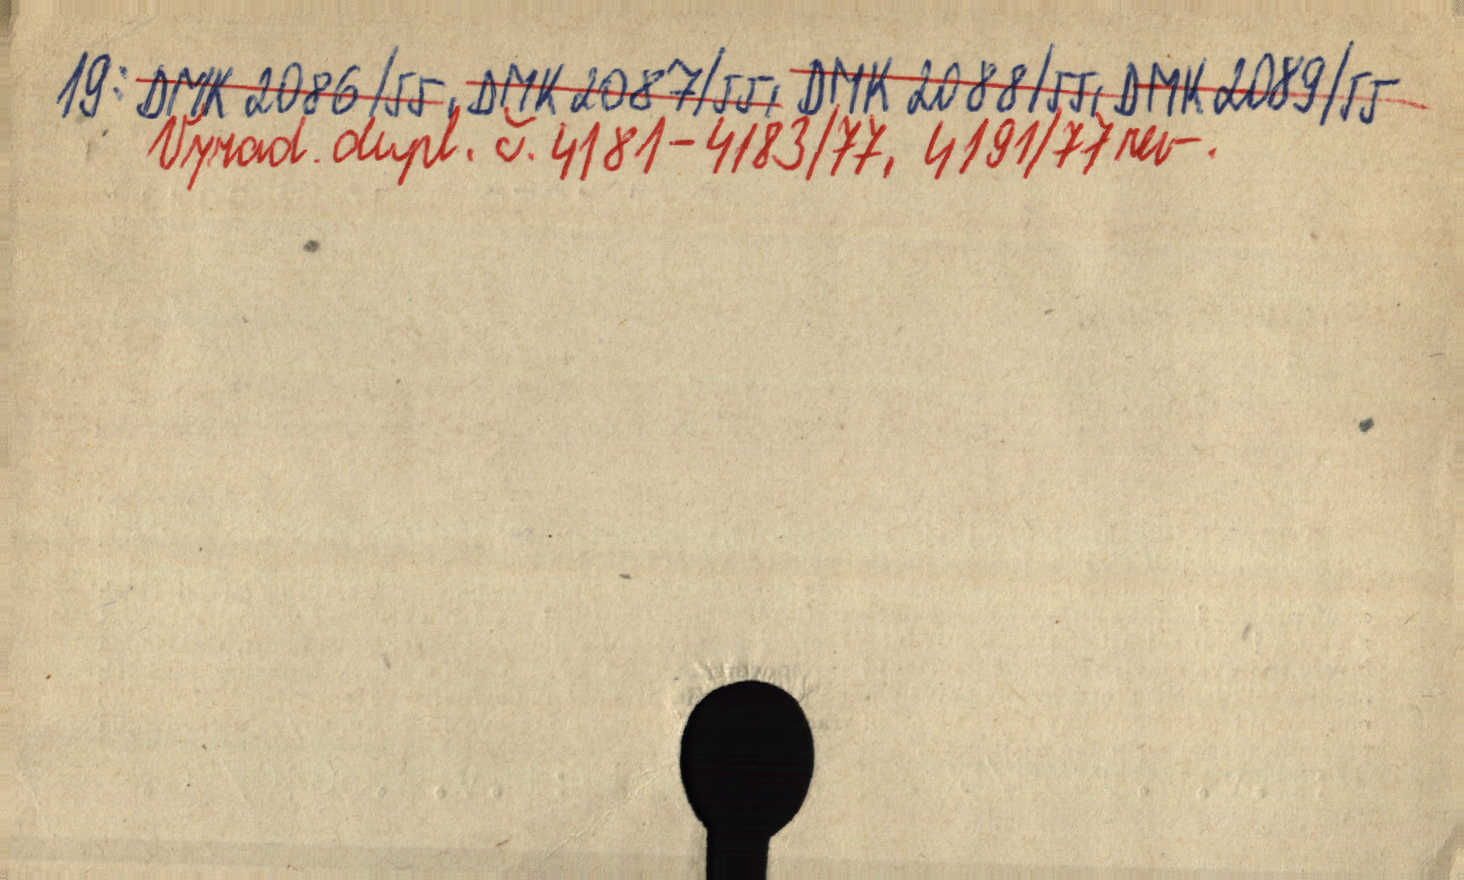 19: DMK 2086/55, DMK 2087/55, DMK 2088/55, DMK 2089/55
Vyrad. dupl. č. 4181-4183/77, 4191/77 rev.